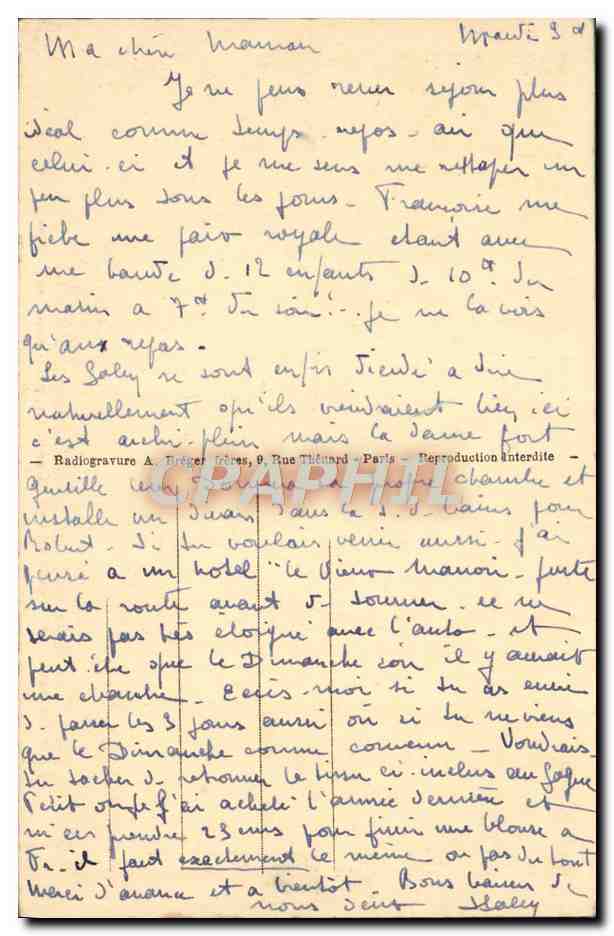 Mardi 3
Ma chère Maman
Je ne peux rêver séjour plus
idéal comme temps - repos - air que
celui-ci et je me sens me retaper un
peu plus tous les jours - Françoise me
fiche une paix royale étant avec
une bande de 12 enfants de 10h du
matin a 7h du soir! - Je ne la vois
qu'aux repas -
Les se sont enfin décidé a dire
naturellement qu'ils viendraient bien ici
c'est archi-plein mais la dame fort
— Radiogravure A. Bréger frères, 9, Rue Thénard - Paris — Reproduction interdite —
CPAPHIL
gentille leur donnera notre chambre et
installe un divan dans la S. d. bains pour
Robert - Si tu voulais venir aussi - j'ai
pensé a un hotel "le Vieux Manoir - juste
sur la route avant de ce ne
serais pas très éloigné avec l'auto - et
peut être que le Dimanche soir il y aurait
une chambre - Ecris-moi si tu as envie
de passer les 3 jours aussi où si tu ne viens
que le Dimanche comme convenu - Voudrais
tu tacher de retrouver le tissu ci-inclus au
Petit j'ai acheté l'année dernière et
m'en prendre 25 cms pour finir une blouse a
Fr - il faut exactement le même ou pas du tout
Merci d'avance et a bientôt Bons baisers de
nous deux